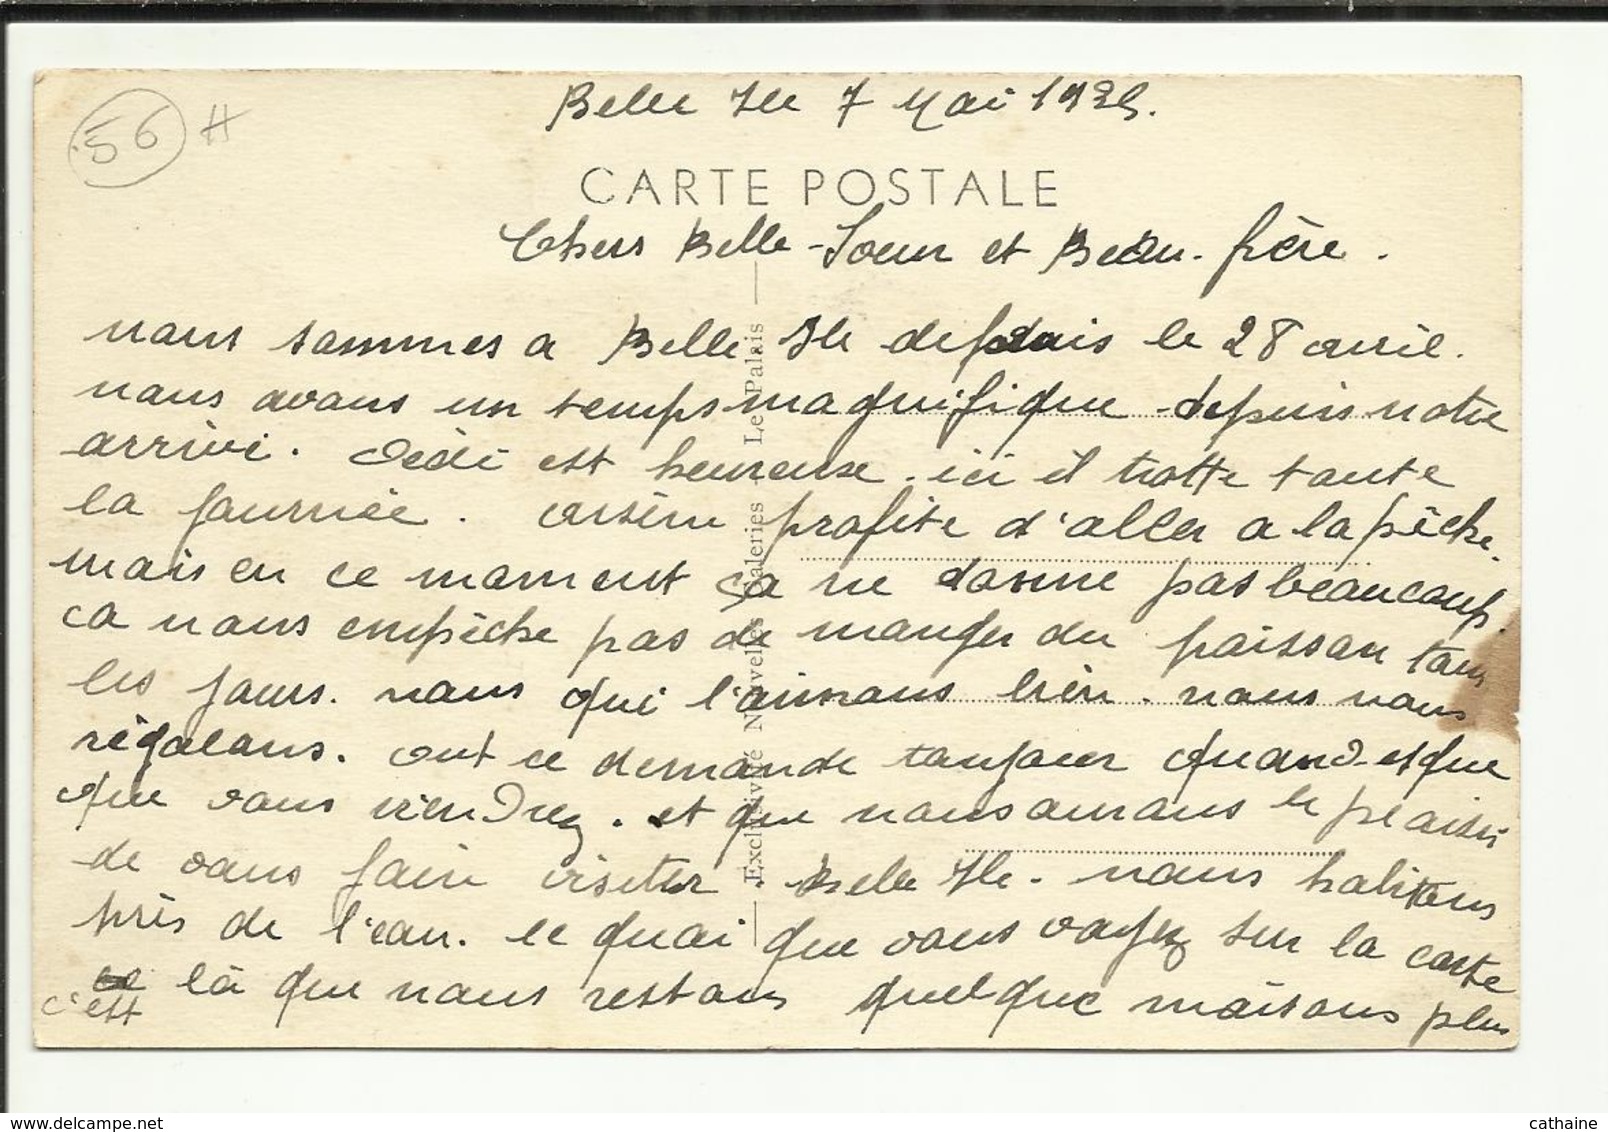 56 H
Belle Ile 7 Mai 192
CARTE POSTALE
Chers Belle-Soeur et Beau-frère.
nous sommes a Belle Ile depuis le 28 avril.
nous avons un temps magnifique depuis notre
arrivé. Dédé est heureuse. ici il trotte toute
la journée. arsène profite d'aller a la pêche.
mais en ce moment ça ne donne pas beaucoup.
ca nous empêche pas de manger du poisson tous
les jours. nous qui l'aimons bien. nous nous
régalons. ont ce demande toujour quand-esque
que vous viendrez. et que nous aurons le plaisir
de vous faire visiter Belle Ile. nous habitons
près de l'eau. le quai que vous voyez sur la carte
c'est là que nous restons quelque maisons plus
Exclusivité Nouvelles Galeries - Le Palais
cathaine